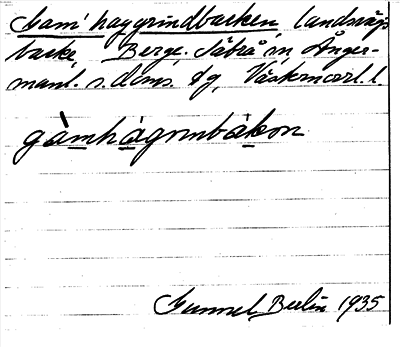 Gam'haggrindbacken, landsvägs-
backe, Berge. Säbrå sn Ånger-
manl. s. doms. dg, Västernorrl. l.
gàmhágrınbákon
Gunnel Berlin 1935